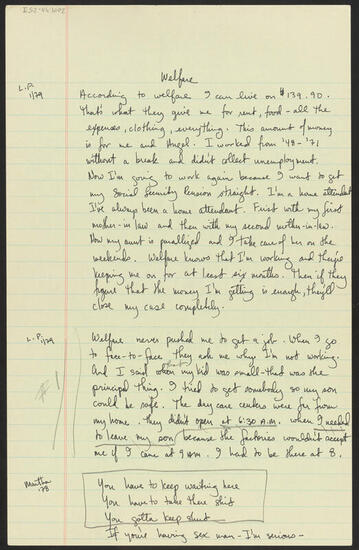 Welfare
L. P.
1/79
According to welfare I can live on $139.90.
That's what they give me for rent, food - all the
expenses, clothing, everything. This amount of money
is for me and Angel. I worked from '48 - '71
without a break and didn't collect unemployment.
Now I'm going to work again because I want to get
my Social Security Pension straight. I'm a home attendant
I've always been a home attendant. First with my first
mother-in law and then with my second mother-in-law.
Now my aunt is paralized and I take care of her on the
weekends. Welfare knows that I'm working and they're
keeping me on for at least six months. Then if they
figure that the money I'm getting is enough, they'll
close my case completely.
L. P. 1/79
Welfare never pushed me to get a job. When I go
to face-to-face they ask me why I'm not working.
And I said when my kid was small - that was the
principal thing. I tried to get somebody so my son
could be safe. The day care centers were far from
my home. They didn't open at 6:30 A.M. when I needed
to leave my son because the factories wouldn't accept
me if I came at 9 AM. I had to be there at 8.
Martha
'78
You have to keep waiting here
You have to take there shit
You gotta keep shut
If you're having sex man - I'm serious -